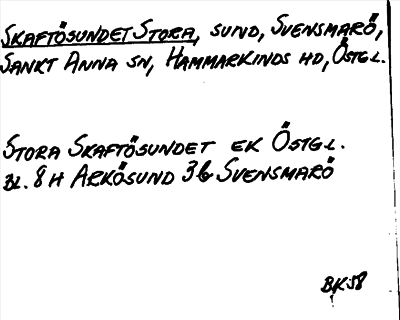 SKAFTÖSUNDET STORA, SUND, SVENSMARÖ,
SANKT ANNA SN, HAMMARKINDS HD, ÖSTGL.
STORA SKAFTÖSUNDET EK ÖSTGL.
BL. 8 H ARKÖSUND 3 b SVENSMARÖ